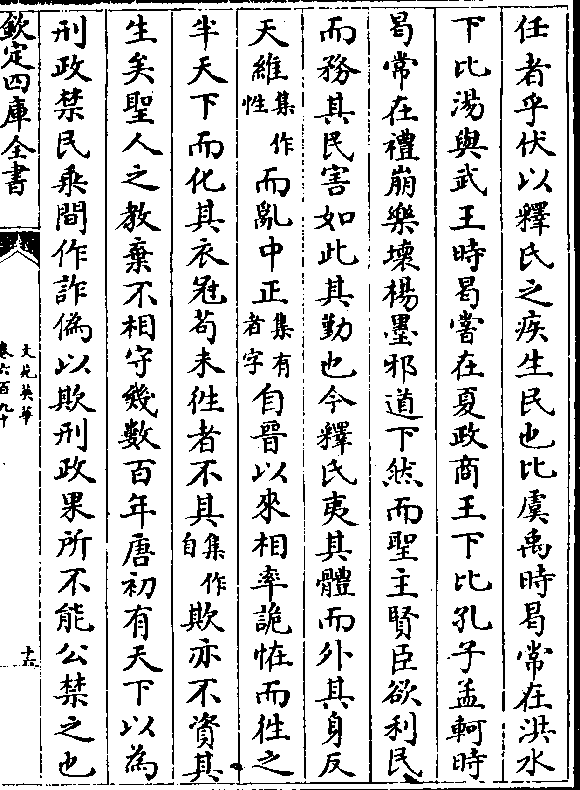 任者乎伏以釋氏之疾生民也比虞禹時曷常在洪水
下比湯與武王時曷嘗在夏政商王下比孔子孟軻時
曷常在禮崩樂壞楊墨邪道下然而聖主賢臣欲利民
而務其民害如此其勤也今釋氏夷其體而外其身反
天維集作性而亂中正集有者字自晉以來相率詭恠而徃之
半天下而化其衣冠苟未徃者不具集作自欺亦不資其
生矣聖人之教棄不相守幾數百年唐初有天下以為
刑政禁民乘間作詐偽以欺刑政果所不能公禁之也
欽定四庫全書
文苑英華
卷六百九十
十六